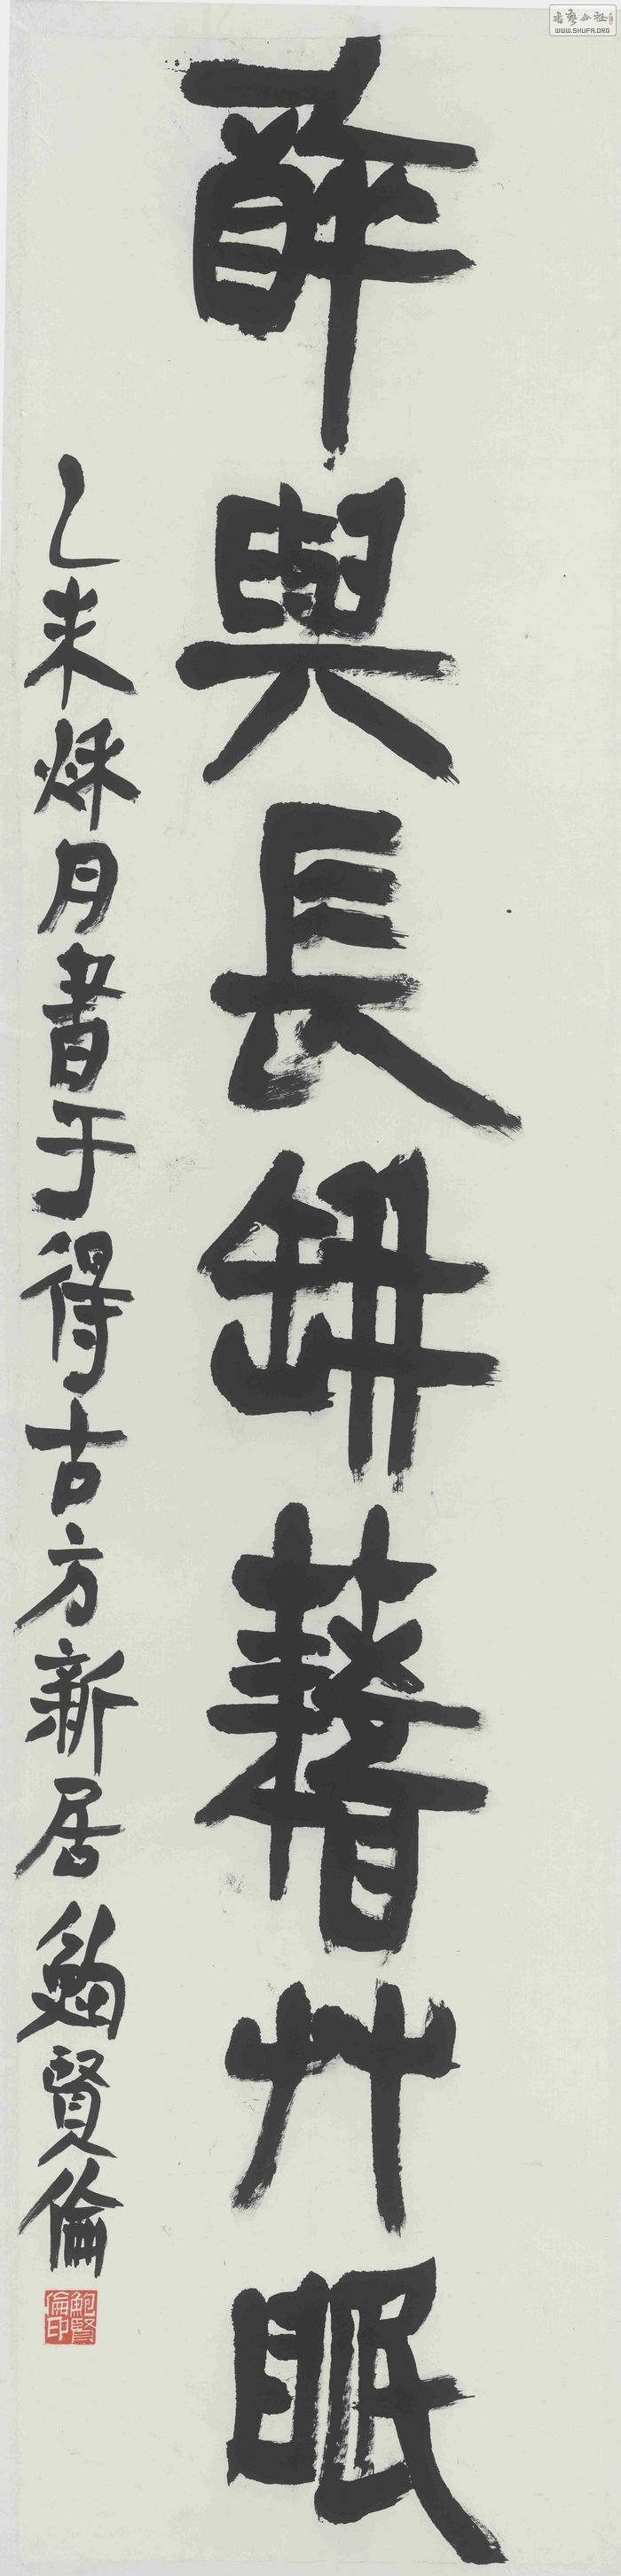 醉與長缾藉艸眠
乙未秌月書于得古方新居鮑賢倫
鮑賢倫印
書藝公社
WWW.SHUFA.ORG